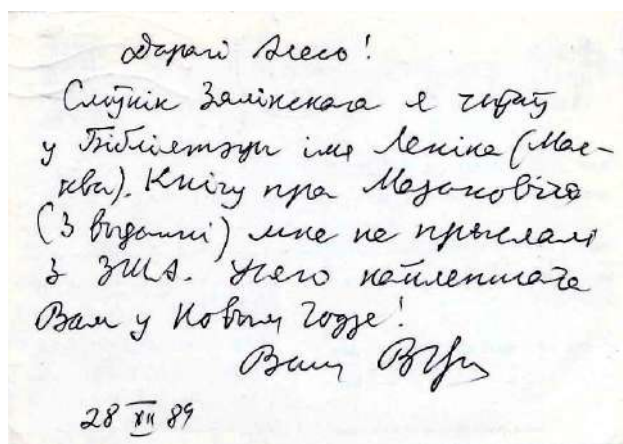 Дарагі Алесь!
Слоўнік Зялінскага я чытаў
у Бібліятэцы імя Леніна (Мас-
ква). Кнігу пра Мазаковіча
(3 выданні) мне не прыслалі
з ЗША. Усяго найлепшага
Вам у Новым годзе!
Ваш
28 XII 89